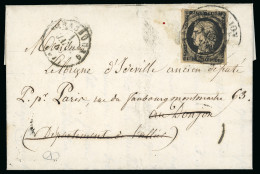 Monsieur
Leblogne d'Ideville ancien député
P. pr Paris, rue du faubourg montmartre 63.
au Donjon
Département de l'allier
1